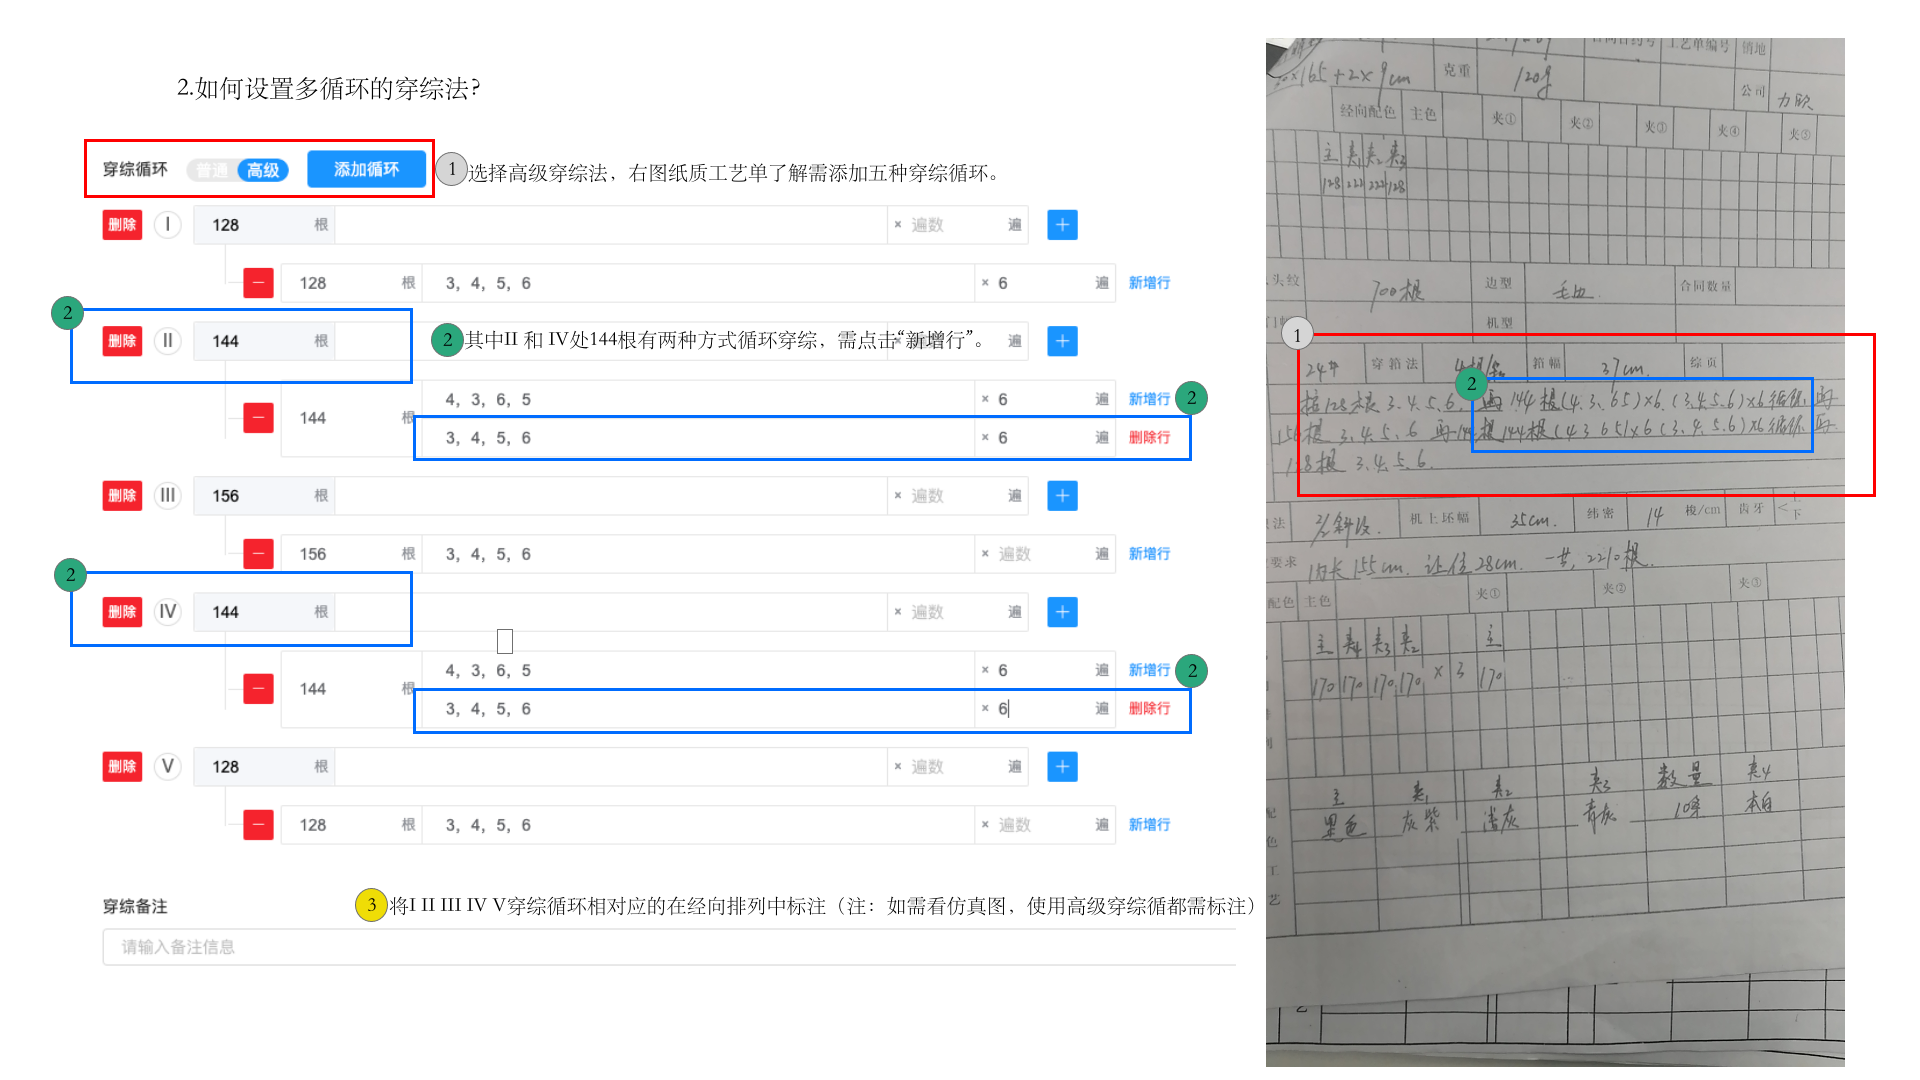 2.如何设置多循环的穿综法?
穿综循环 普通 高级 添加循环
1 选择高级穿综法，右图纸质工艺单了解需添加五种穿综循环。
删除 I 128 根 × 遍数 遍 +
− 128 根 3, 4, 5, 6 × 6 遍 新增行
2
删除 II 144 根 遍 +
2 其中II 和 IV处144根有两种方式循环穿综，需点击“新增行”。
− 144 根 4, 3, 6, 5 × 6 遍 新增行 2
3, 4, 5, 6 × 6 遍 删除行
删除 III 156 根 × 遍数 遍 +
− 156 根 3, 4, 5, 6 × 遍数 遍 新增行
2
删除 IV 144 根 × 遍数 遍 +
− 144 根 4, 3, 6, 5 × 6 遍 新增行 2
3, 4, 5, 6 × 6 遍 删除行
删除 V 128 根 × 遍数 遍 +
− 128 根 3, 4, 5, 6 × 遍数 遍 新增行
穿综备注
3 将I II III IV V穿综循环相对应的在经向排列中标注（注：如需看仿真图，使用高级穿综循都需标注）
请输入备注信息
工艺单编号 销地
x165+2x9cm 克重 120g
公司 力欣
经向配色 主色 夹① 夹② 夹③ 夹④ 夹⑤
主 夹1 夹2 夹3
128 222 222 128
头纹 700根 边型 毛边 合同数量
机型
1
24# 穿筘法 4根/筘 筘幅 37cm. 综页
2
128根 3.4.5.6. 再144根(4.3.65)×6.(3.4.5.6)×6循环.再
156根 3.4.5.6 再144根(43 65)×6(3.4.5.6)×6循环 再
128根 3.4.5.6.
法 2/2斜纹. 机上坯幅 35cm. 纬密 14 梭/cm 齿牙 < 上 下
要求 内长155cm. 让位28cm. 一共,2210根.
配色 主色 夹① 夹② 夹③
主 夹4 夹3 夹2 主
170 170 170 170 ×3 170
主 夹1 夹2 夹3 数量 夹4
黑色 灰紫 浅灰 青灰 10条 本白
色
工
艺